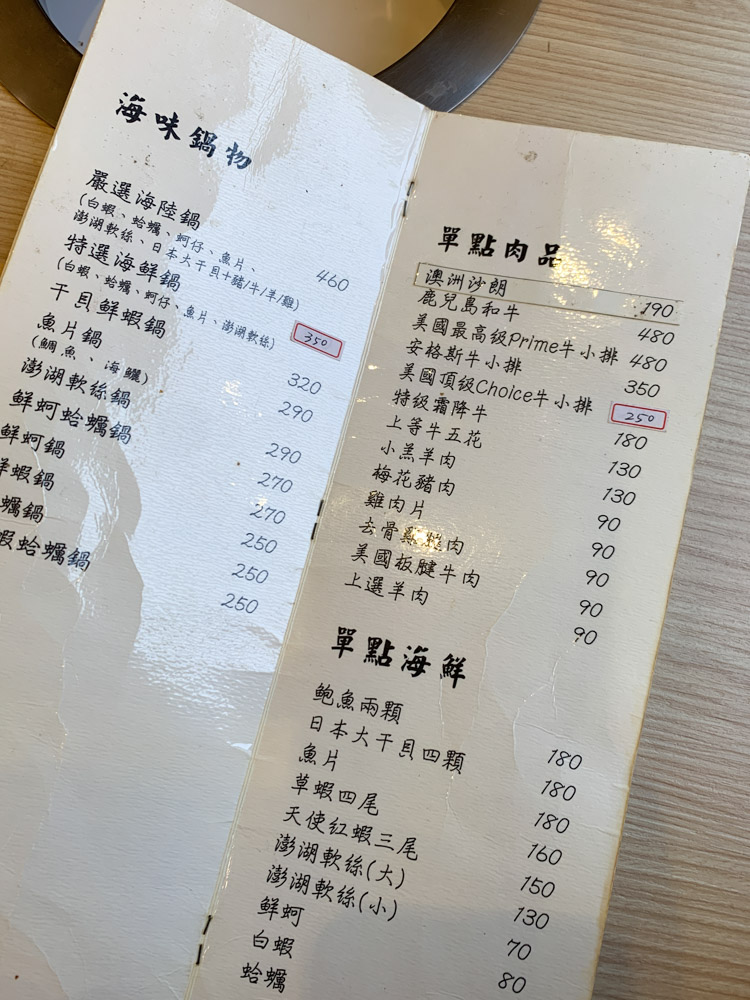 海味鍋物
嚴選海陸鍋 460
(白蝦、蛤蠣、蚵仔、魚片、
澎湖軟絲、日本大干貝+豬/牛/羊/雞)
特選海鮮鍋 350
(白蝦、蛤蠣、蚵仔、魚片、澎湖軟絲)
干貝鮮蝦鍋 320
魚片鍋 290
(鯛魚、海鱺)
澎湖軟絲鍋 290
鮮蚵蛤蠣鍋 270
鮮蚵鍋 270
蝦鍋 250
蠣鍋 250
蝦蛤蠣鍋 250
單點肉品
澳洲沙朗 190
鹿兒島和牛 480
美國最高級Prime牛小排 480
安格斯牛小排 350
美國頂級Choice牛小排 250
特級霜降牛 180
上等牛五花 130
小羔羊肉 130
梅花豬肉 90
雞肉片 90
去骨雞腿肉 90
美國板腱牛肉 90
上選羊肉 90
單點海鮮
鮑魚兩顆 180
日本大干貝四顆 180
魚片 180
草蝦四尾 160
天使紅蝦三尾 150
澎湖軟絲(大) 130
澎湖軟絲(小) 70
鮮蚵 80
白蝦
蛤蠣